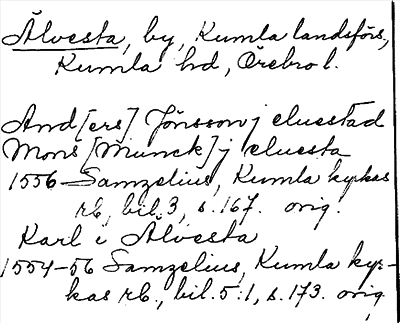 Älvesta, by, Kumla landsförs,
Kumla hd, Örebro l.
And[ers] Jönsson j eluestad
Mons [Munck] j eluesta
1556 Samzelius, Kumla kyrkas
rb, bil. 3, s. 167. orig.
Karl i Älvesta
1554-56 Samzelius, Kumla kyr-
kas rb., bil. 5:1, s. 173. orig.